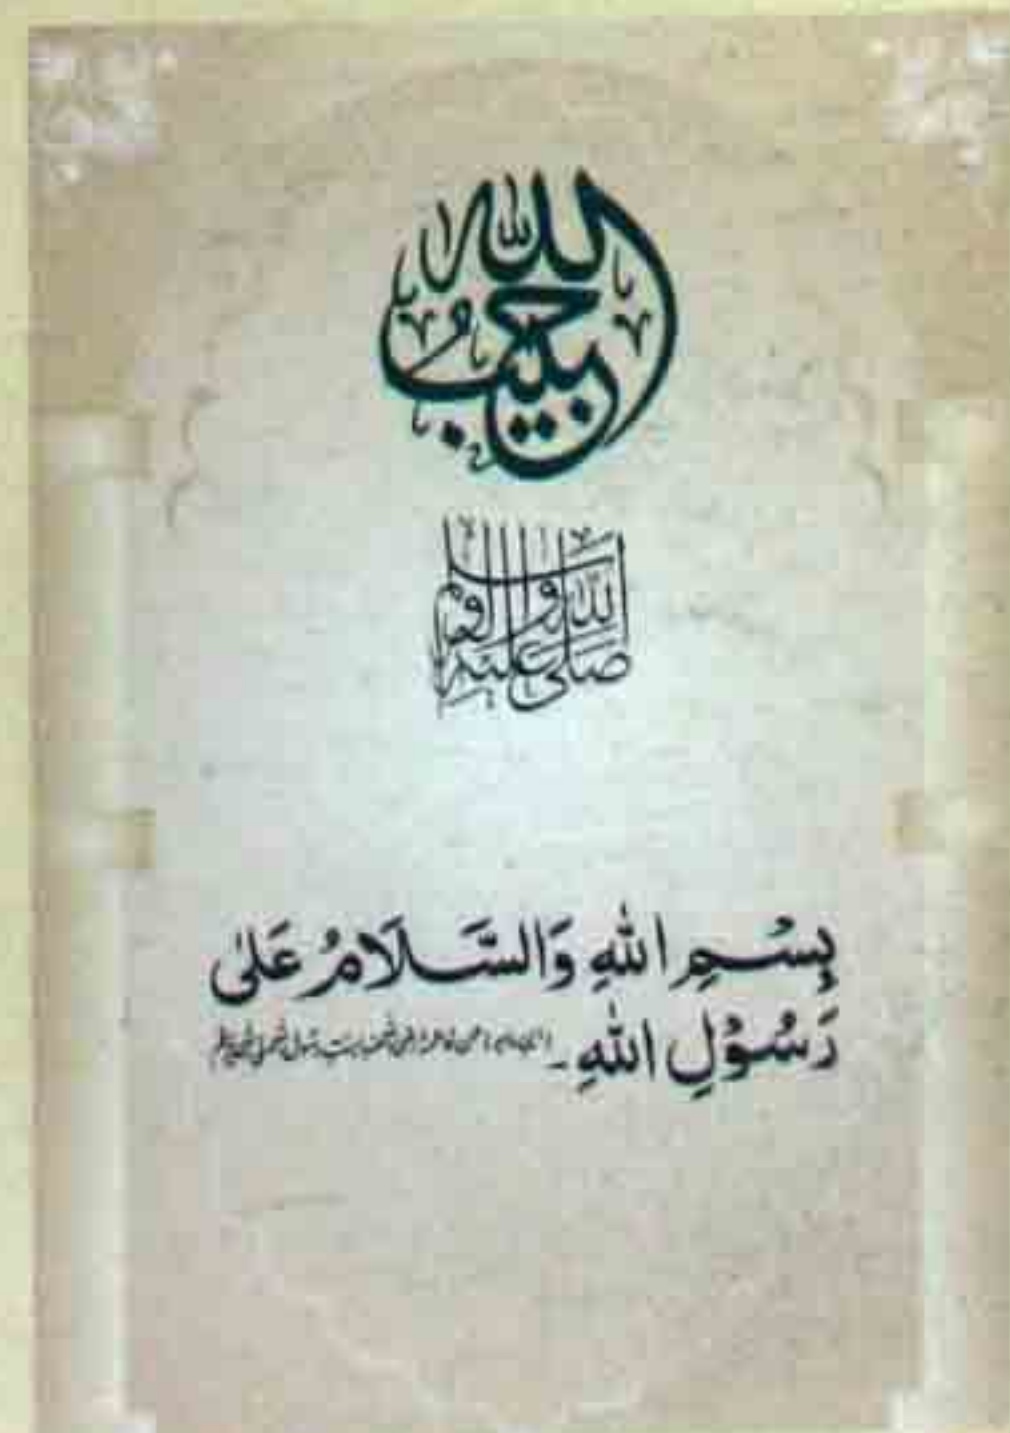 حبيب الله
صلى الله عليه وآله وسلم
بِسْمِ اللهِ وَالسَّلَامُ عَلٰى
رَسُوْلِ اللهِ۔